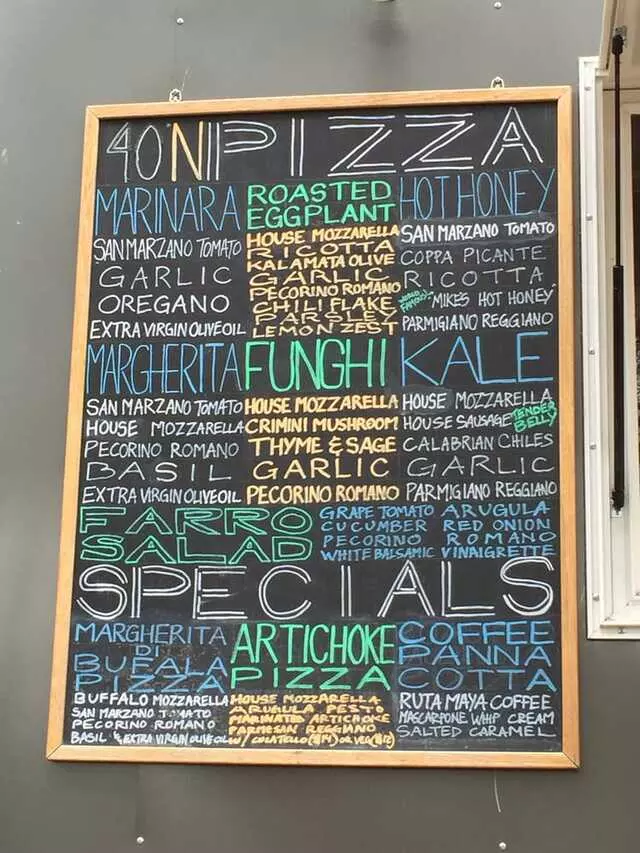 40 N PIZZA
MARINARA
SAN MARZANO TOMATO
GARLIC
OREGANO
EXTRA VIRGIN OLIVE OIL
ROASTED
EGGPLANT
HOUSE MOZZARELLA
RICOTTA
KALAMATA OLIVE
GARLIC
PECORINO ROMANO
CHILI FLAKE
PARSLEY
LEMON ZEST
HOT HONEY
SAN MARZANO TOMATO
COPPA PICANTE
RICOTTA
WORLD FAMOUS MIKE'S HOT HONEY
PARMIGIANO REGGIANO
MARGHERITA
SAN MARZANO TOMATO
HOUSE MOZZARELLA
PECORINO ROMANO
BASIL
EXTRA VIRGIN OLIVE OIL
FUNGHI
HOUSE MOZZARELLA
CRIMINI MUSHROOM
THYME & SAGE
GARLIC
PECORINO ROMANO
KALE
HOUSE MOZZARELLA
HOUSE SAUSAGE TENDER BELLY
CALABRIAN CHILES
GARLIC
PARMIGIANO REGGIANO
FARRO
SALAD
GRAPE TOMATO ARUGULA
CUCUMBER RED ONION
PECORINO ROMANO
WHITE BALSAMIC VINAIGRETTE
SPECIALS
MARGHERITA
DI
BUFALA
PIZZA
BUFFALO MOZZARELLA
SAN MARZANO TOMATO
PECORINO ROMANO
BASIL & EXTRA VIRGIN OLIVE OIL
ARTICHOKE
PIZZA
HOUSE MOZZARELLA
ARUGULA PESTO
MARINATED ARTICHOKE
PARMESAN REGGIANO
W/ CULATELLO ($14) OR VEG ($12)
COFFEE
PANNA
COTTA
RUTA MAYA COFFEE
MASCARPONE WHIP CREAM
SALTED CARAMEL